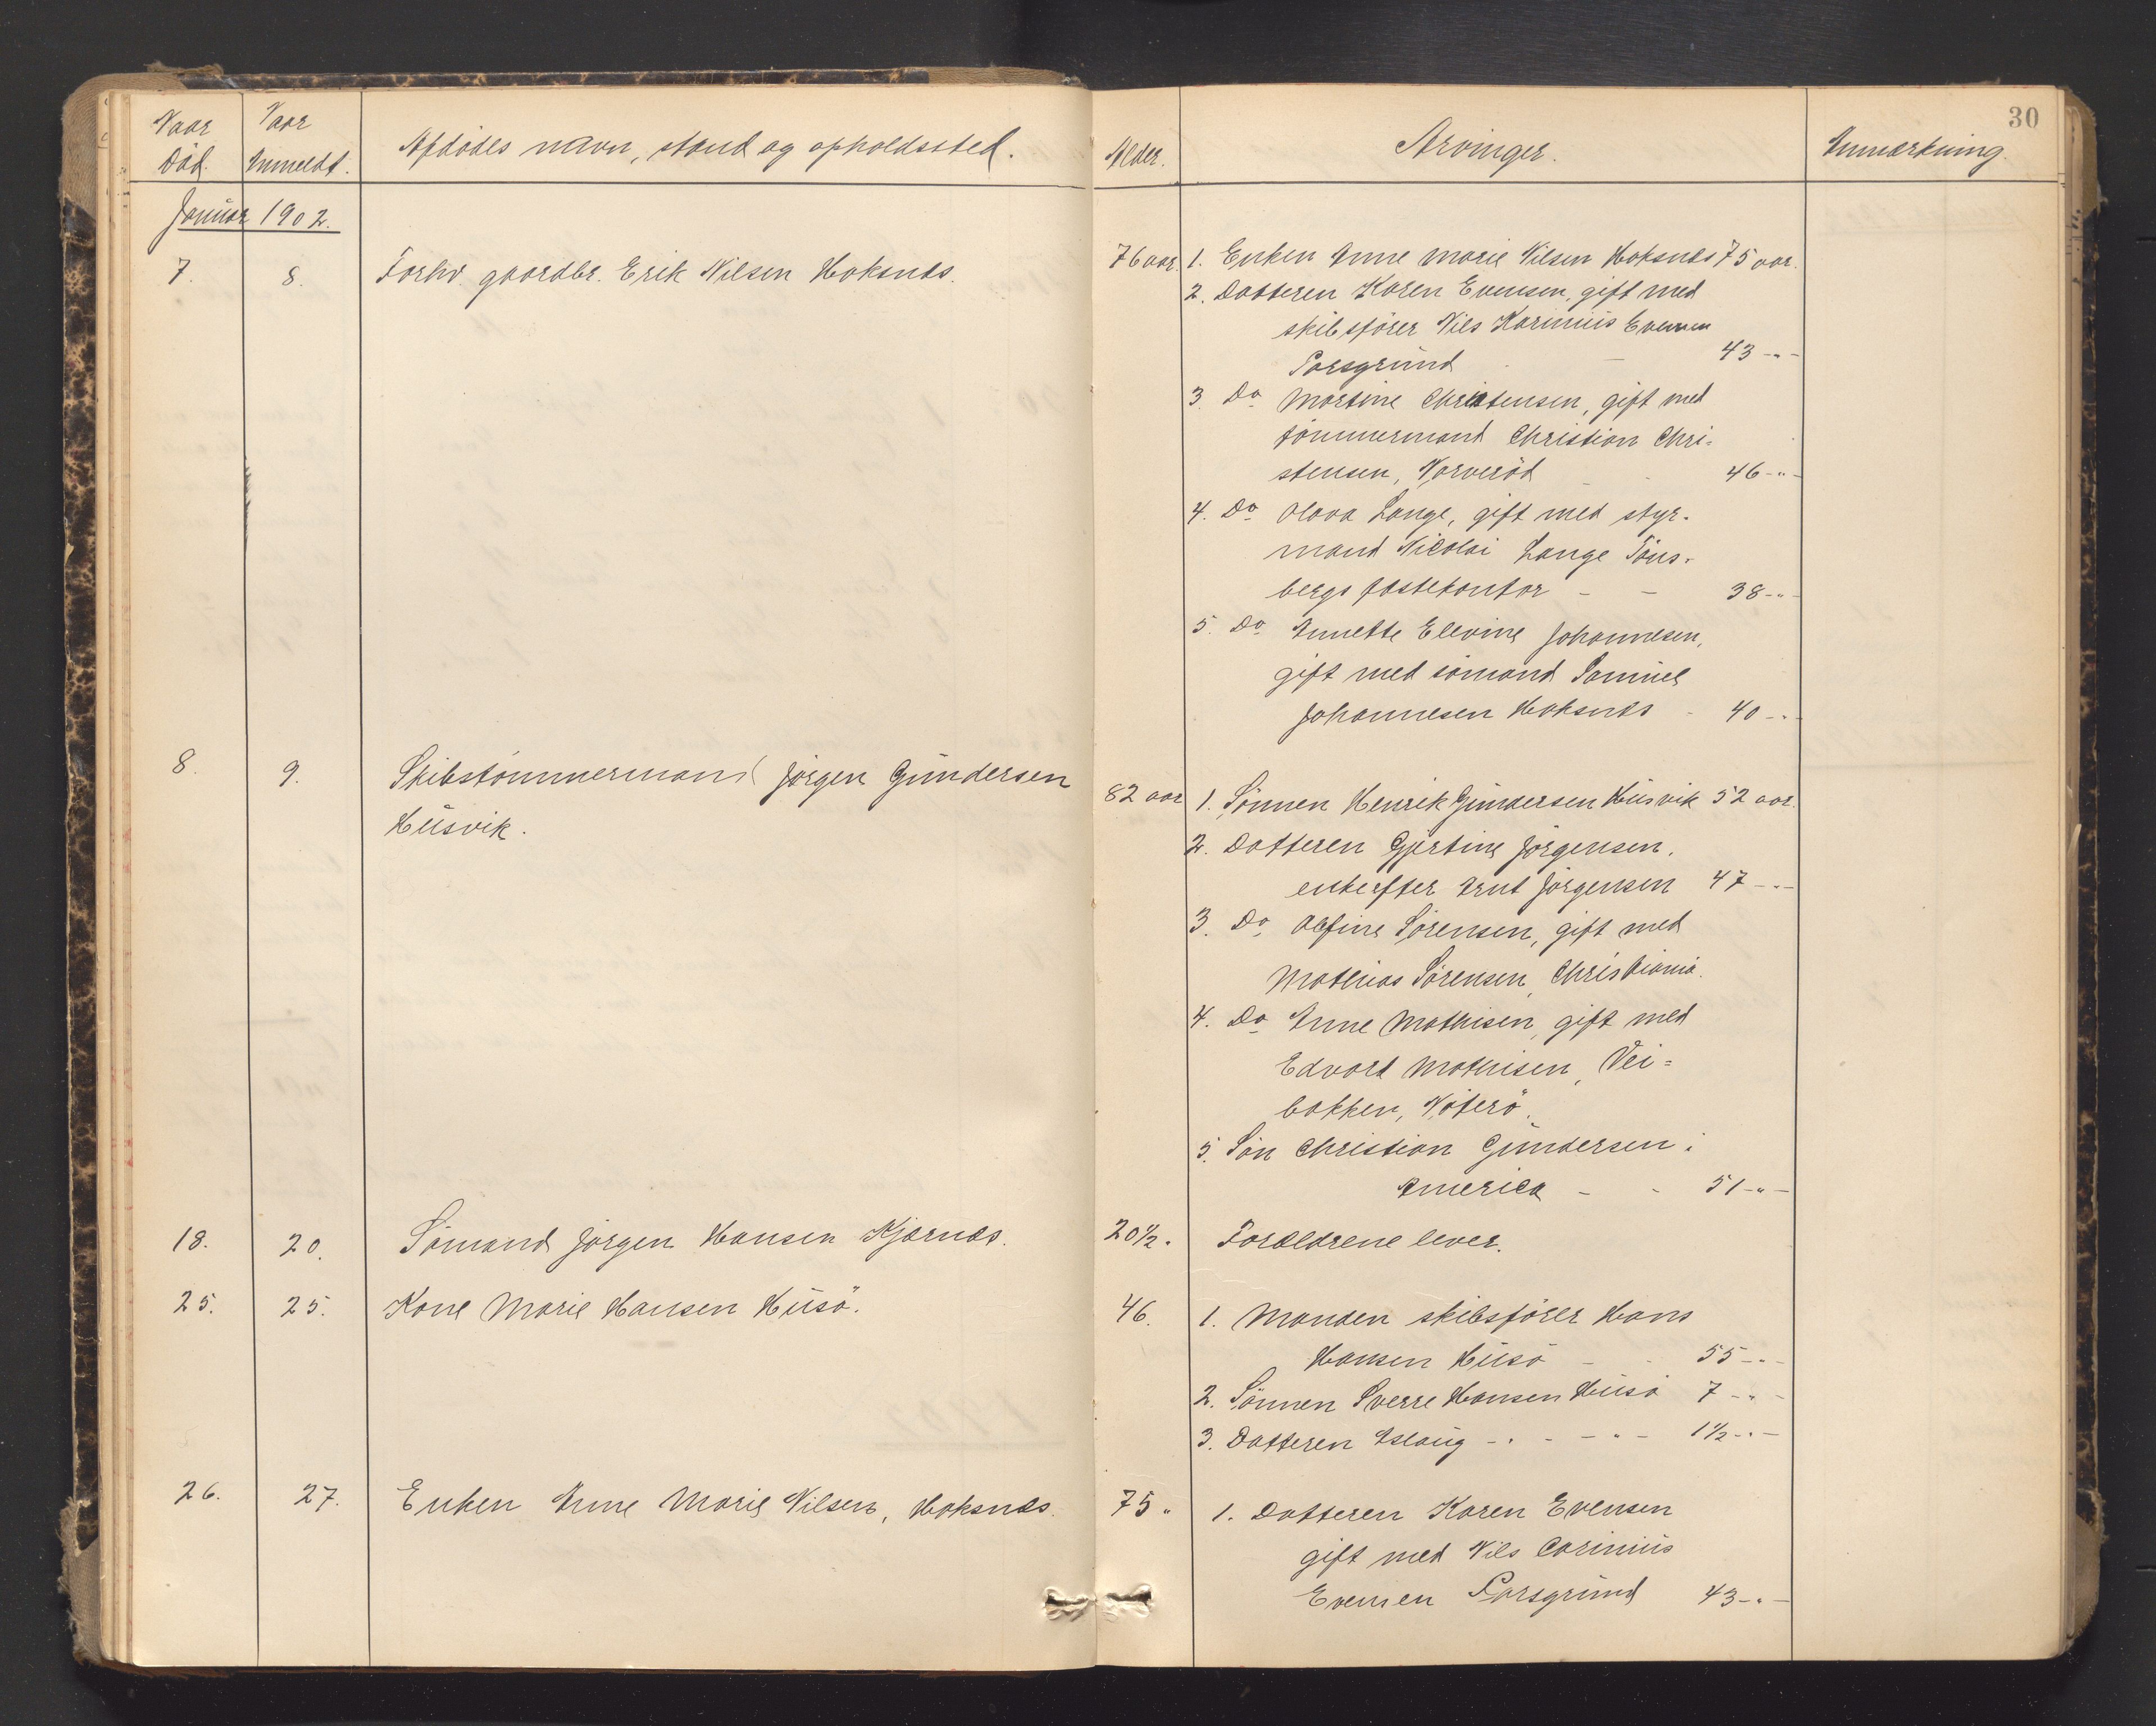 30
Naar Død. Naar Anmeldt. Afdødes navn, stand og opholdssted. Alder. Arvinger. Anmærkning.
Januar 1902.
7. 8. Forhv. gaardbr. Erik Nilsen Hoksnes. 76 aar. 1. Enken Anne Marie Nilsen Hoksnes 75 aar.
2. Datteren Karen Evensen, gift med
skibsfører Nils Karinius Evensen
Porsgrund - 43 -"-
3. Do Martine Christensen, gift med
tømmermand Christian Chri=
stensen, Narverød - - 46 -"-
4. Do Olava Lange, gift med styr-
mand Nicolai Lange Tøns-
bergs postekontor - - 38 -"-
5. Do Annette Elevine Johannesen,
gift med sømand Samuel
Johannesen Hoksnes - 40 -"-
8. 9. Skibstømmermand Jørgen Gundersen
Husvik.
82 aar 1. Sønnen Henrik Gundersen Husvik 52 aar.
2. Datteren Gjertine Jørgensen,
enke efter Arnt Jørgensen 47 -"-
3. Do Alfine Sørensen, gift med
Mathias Sørensen, Christiania.
4. Do Anne Mathisen, gift med
Edvart Mathisen, Vei=
bakken, Nøterö.
5. Søn Christian Gundersen i
America - - 51 -"-
18. 20. Sømand Jørgen Hansen Kjærnæs. 20 1/2 " Forældrene lever.
25. 25. Kone Marie Hansen Husö. 46. 1. Manden skibsfører Hans
Hansen Husø - - 55 -"-
2. Sønnen Sverre Hansen Husø 7 -"-
3. Datteren Aslaug -"- -"- 1 1/2 -"-
26. 27. Enken Anne Marie Nilsen, Hoksnes. 75 " 1. Datteren Karen Evensen
gift med Nils Carinius
Evensen Porsgrund 43 -"-